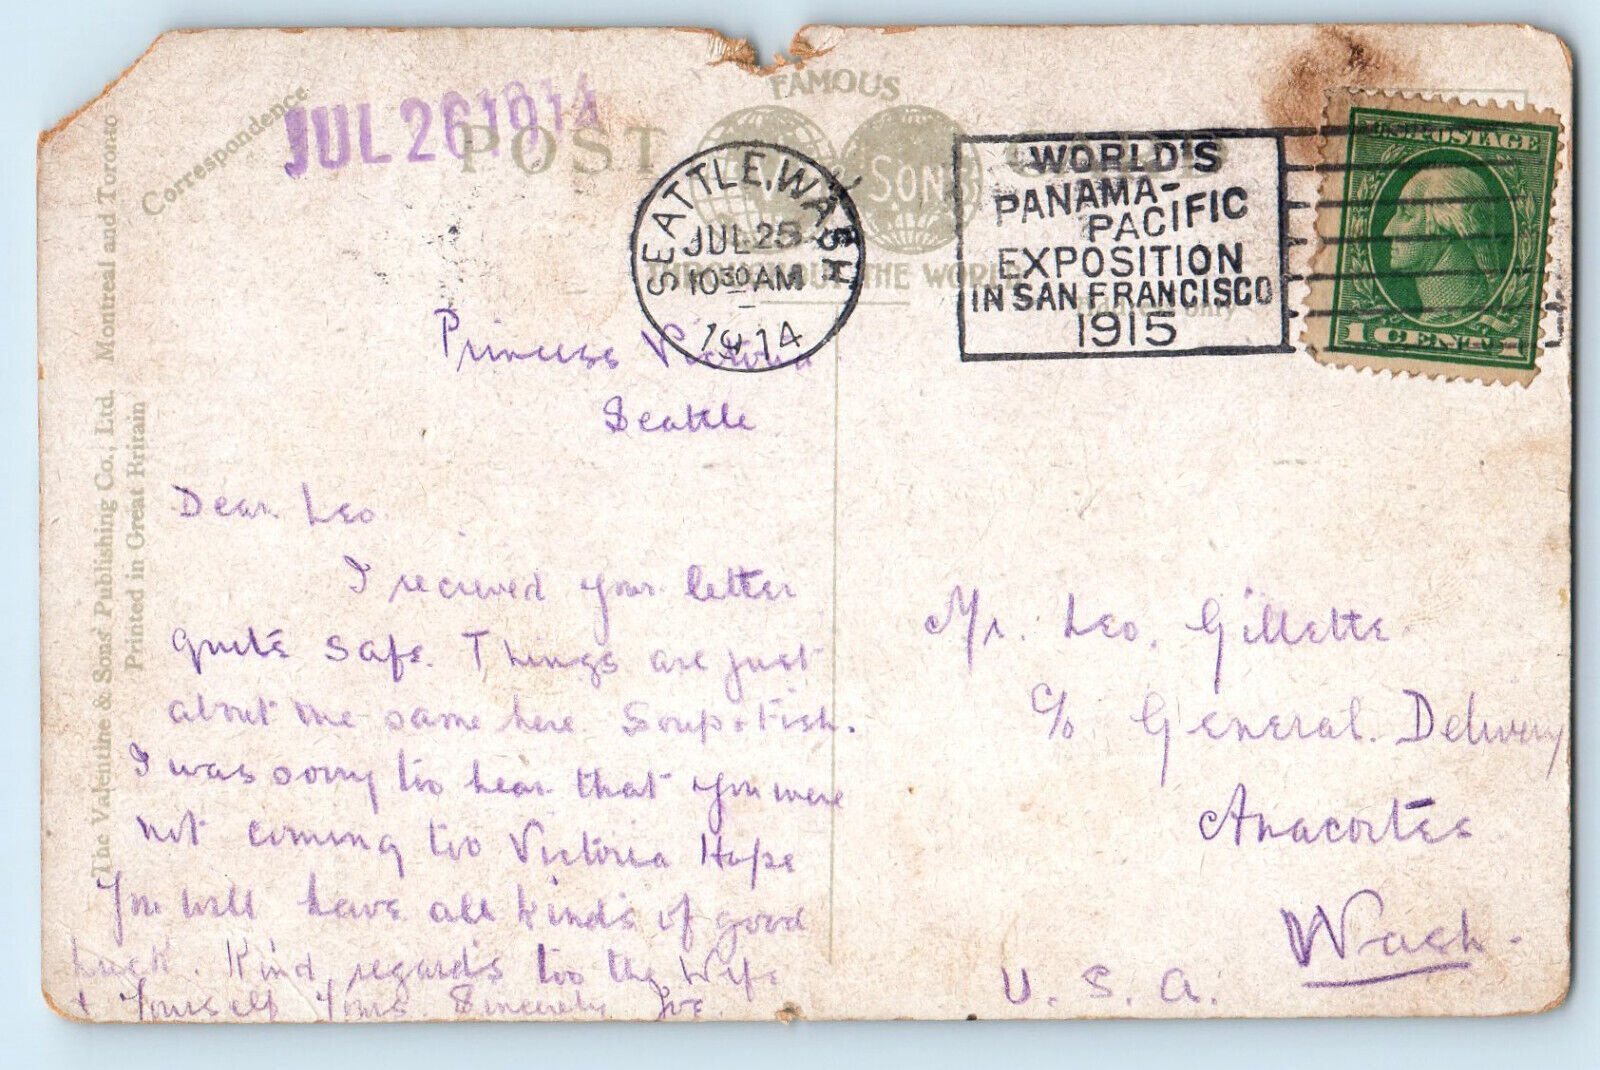 JUL 26 1914
Correspondence
FAMOUS
POST
SONS
THROUGHOUT THE WORLD
SEATTLE, WASH
JUL 25
10 30 AM
1914
WORLD'S
PANAMA-
PACIFIC
EXPOSITION
IN SAN FRANCISCO
1915
U.S. POSTAGE
1 CENT 1
only
The Valentine & Sons' Publishing Co., Ltd. Montreal and Toronto
Printed in Great Britain
Princess Victoria
Seattle
Dear Leo
I recieved your letter
quite safe. Things are just
about the same here. Soup & Fish.
I was sorry too hear that you were
not coming too Victoria Hope
You will have all kinds of good
luck. Kind regards too the Wife
& Yourself Yours Sincerely Joe.
Mr. Leo. Gillette.
c/o General Delivery
Anacortes.
Wash.
U. S. A.